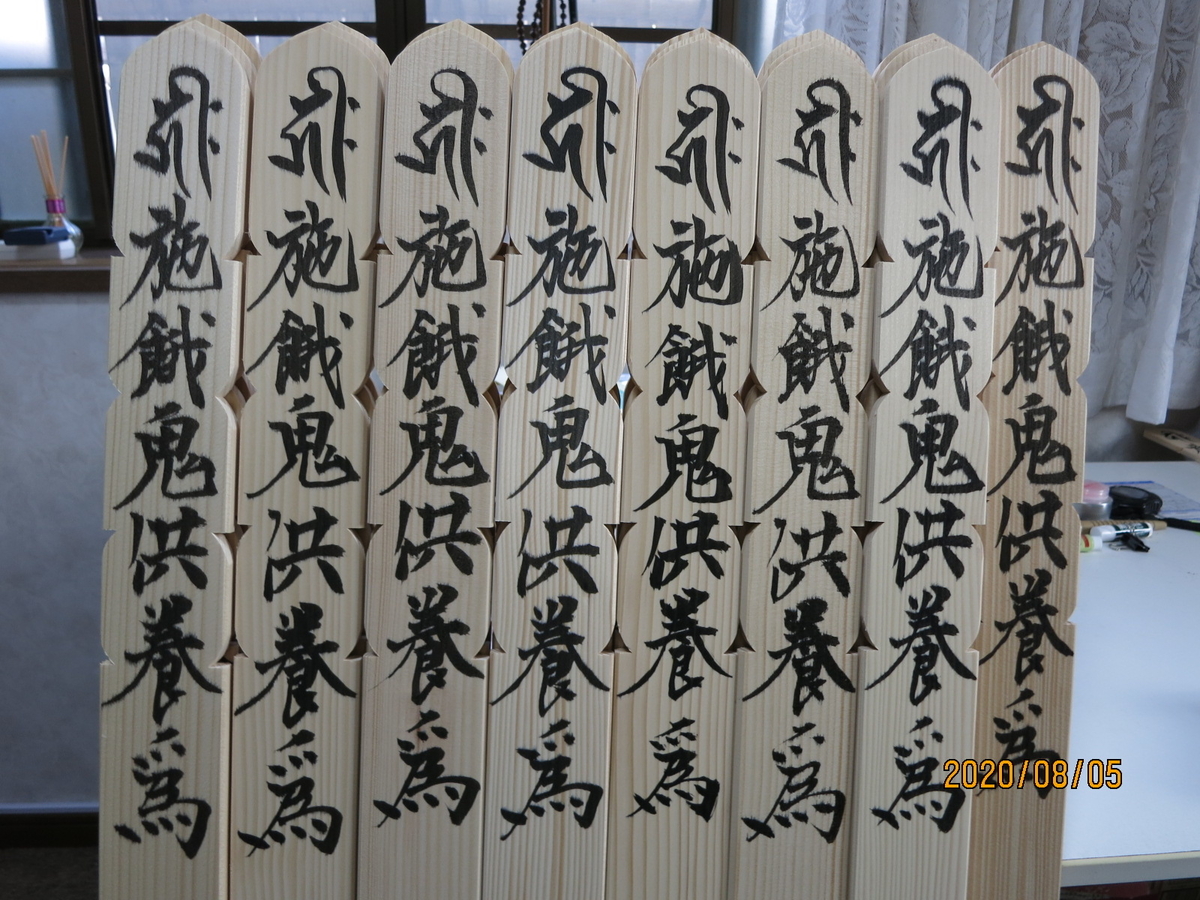 𑖮𑖿𑖨𑖱𑖾施餓鬼供養爲
𑖮𑖿𑖨𑖱𑖾施餓鬼供養爲
𑖮𑖿𑖨𑖱𑖾施餓鬼供養爲
𑖮𑖿𑖨𑖱𑖾施餓鬼供養爲
𑖮𑖿𑖨𑖱𑖾施餓鬼供養爲
𑖮𑖿𑖨𑖱𑖾施餓鬼供養爲
𑖮𑖿𑖨𑖱𑖾施餓鬼供養爲
𑖮𑖿𑖨𑖱𑖾施餓鬼供養爲
2020/08/05